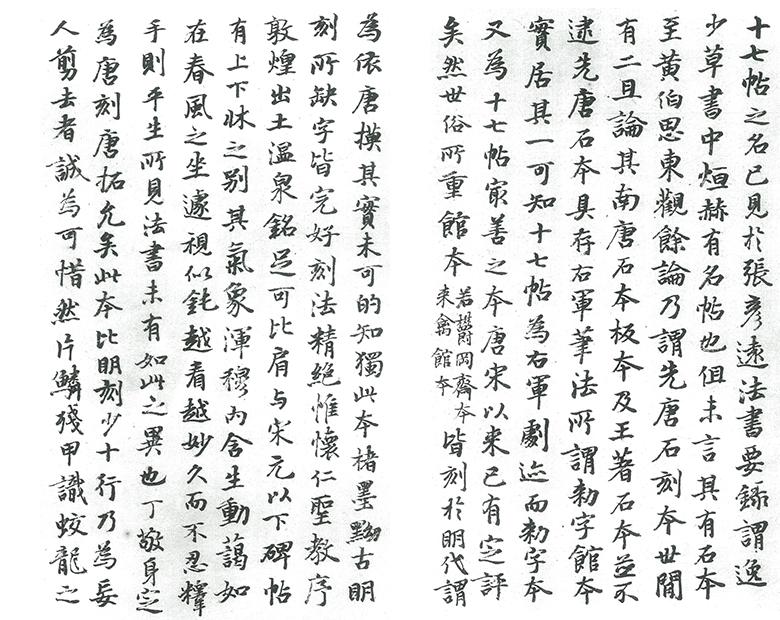 十七帖之名已見於張彥遠法書要錄謂逸
少草書中烜赫有名帖也但未言其有石本
至黃伯思東觀餘論乃謂先唐石刻本世間
有二且論其南唐石本板本及王著石本並不
逮先唐石本具存右軍筆法所謂勅字館本
實居其一可知十七帖為右軍劇迹而勅字本
又為十七帖冣善之本唐宋以來已有定評
矣然世俗所重館本若欝岡齋本來禽館本皆刻於明代謂
為依唐摸其實未可的知獨此本楮墨黝古明
刻所缺字皆完好刻法精絕惟懷仁聖教序
敦煌出土溫泉銘足可比肩与宋元以下碑帖
有上下牀之別其氣象渾穆內含生動藹如
在春風之坐遽視似鈍越看越妙久而不忍釋
手則平生所見法書未有如此之異也丁敬身定
為唐刻唐拓允矣此本比明刻少十行乃為妄
人剪去者誠為可惜然片鱗殘甲識蛟龍之